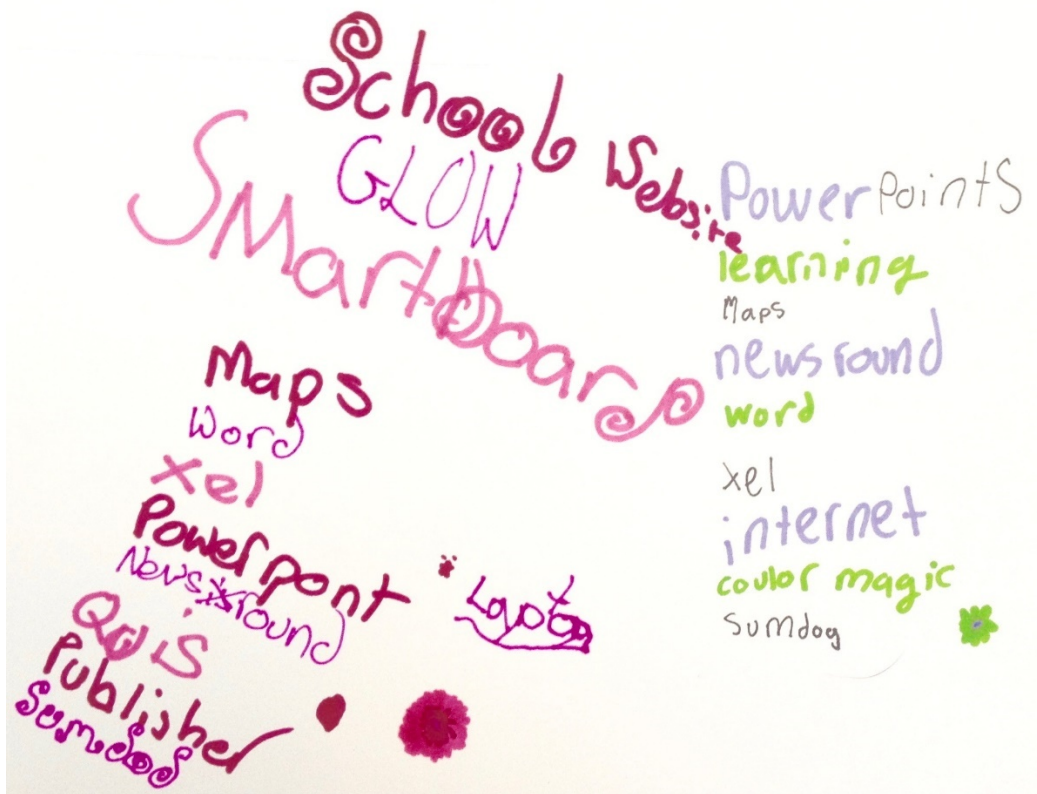 School Website
GLOW
Smartboard
Maps
Word
Xel
Powerpont
Newsround
Quis
Publisher
Sumdog
PowerPoints
learning
Maps
newsround
word
xel
internet
coulor magic
Sumdog